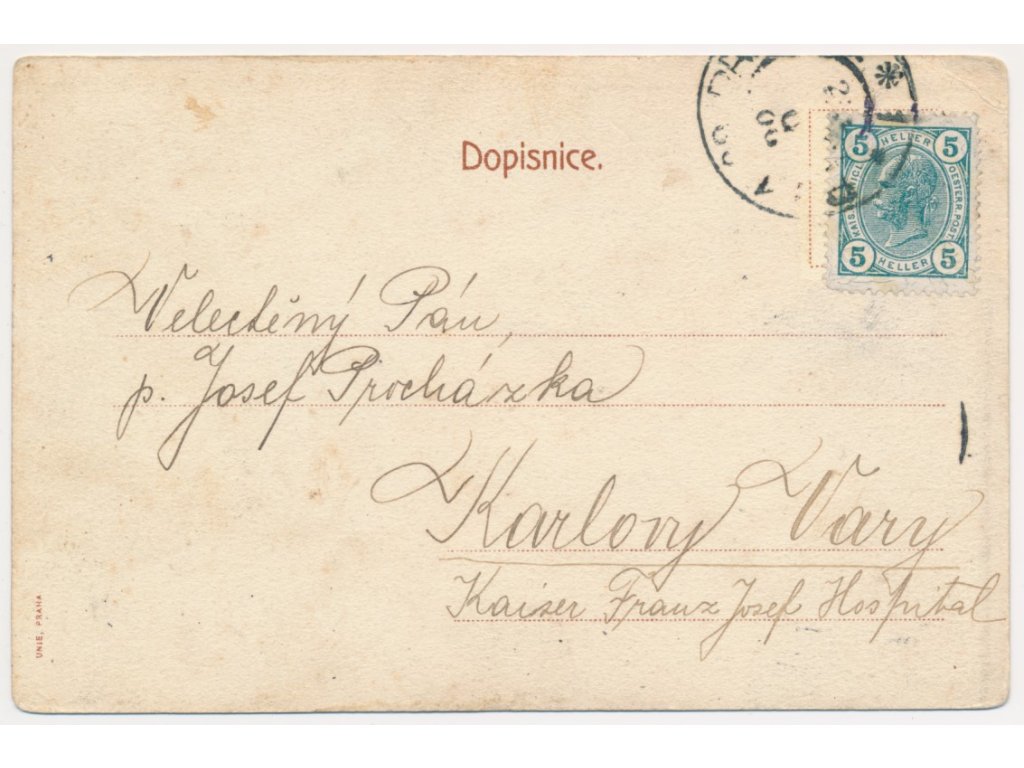 Dopisnice.
5 HELLER 5
KAIS. KÖNIGL.
OESTERR. POST.
5 HELLER 5
Velectěný Pán,
p. Josef Procházka
Karlovy Vary
Kaiser Franz Josef Hospital
UNIE, PRAHA